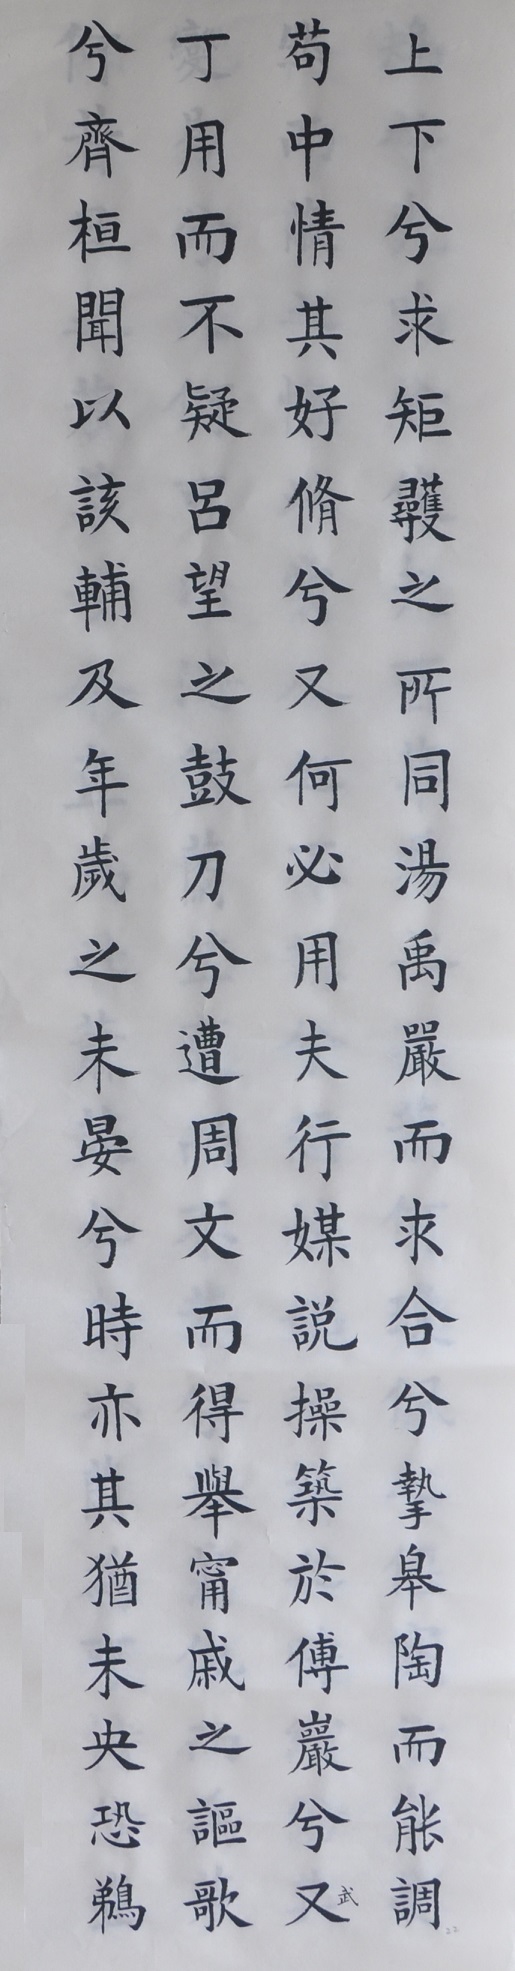 上下兮求矩矱之所同湯禹嚴而求合兮摯皋陶而能調
苟中情其好脩兮又何必用夫行媒説操築於傅巖兮又武
丁用而不疑呂望之鼓刀兮遭周文而得舉甯戚之謳歌
兮齊桓聞以該輔及年歲之未晏兮時亦其猶未央恐鵜
22